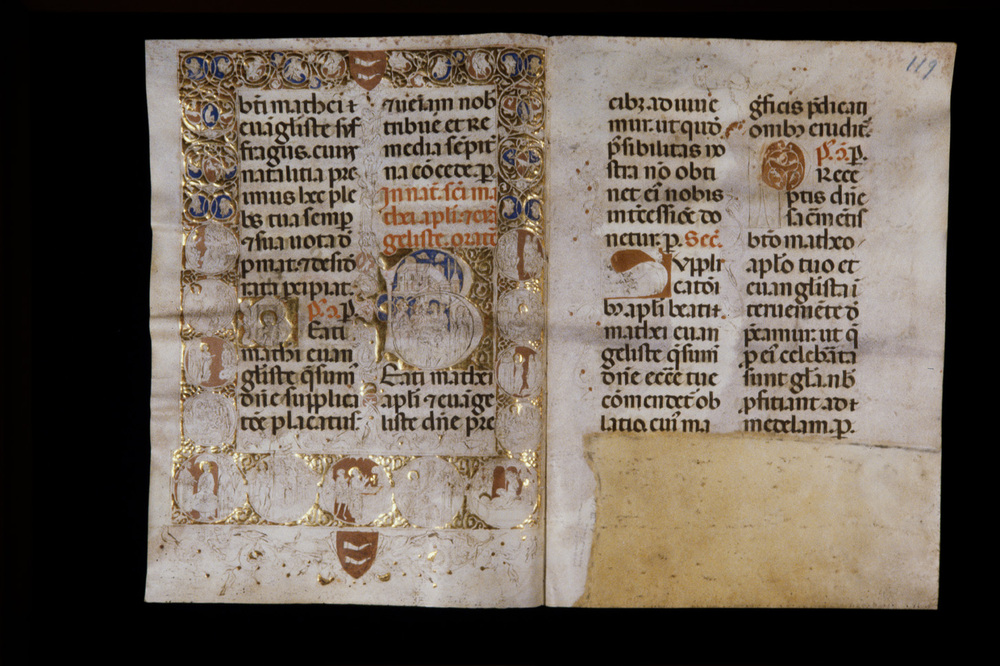 bti mathei ⁊
euāgliste suf
fragiis. cuius
natalitia pre
imus hec ple
bs tua semp
⁊ sua uota d̄
pmat. ⁊ desid
rati pcipiat.
p. ā. P.
Eati
mathi euan
gliste qsum
dn̄e supplica
tōe placatus
⁊ ueīam nob
tribue et Re
media sēpit
na cōcede. p.
In nat. sc̄i ma
thei. apli. ⁊ euā
geliste. oratō
Eati mathei
apli ⁊ euāge
liste dn̄e pre
cibz. adiuue
mur. ut quō
p̄sibilitas no
stra nō obti
net eī nobis
int̄cessiōe do
netur. p. Sec̄.
Vppli
catōi
bz apli beati
mathei euan
geliste q̄sum
dn̄e ecc̄e tue
cōmendet̄ ob
latio. cuī ma
119
gficis p̄dicati
ombz erudit̄.
p. ā. P.
Rece
ptis dn̄e
sacm̄entis
btō matheo
aplō tuo et
euanglista ī
terueniēte d̄
p̄camur. ut q̄
p eī celeb̄ata
sunt glā. nb̄
pfitiant ad ⁊
medelam. p.